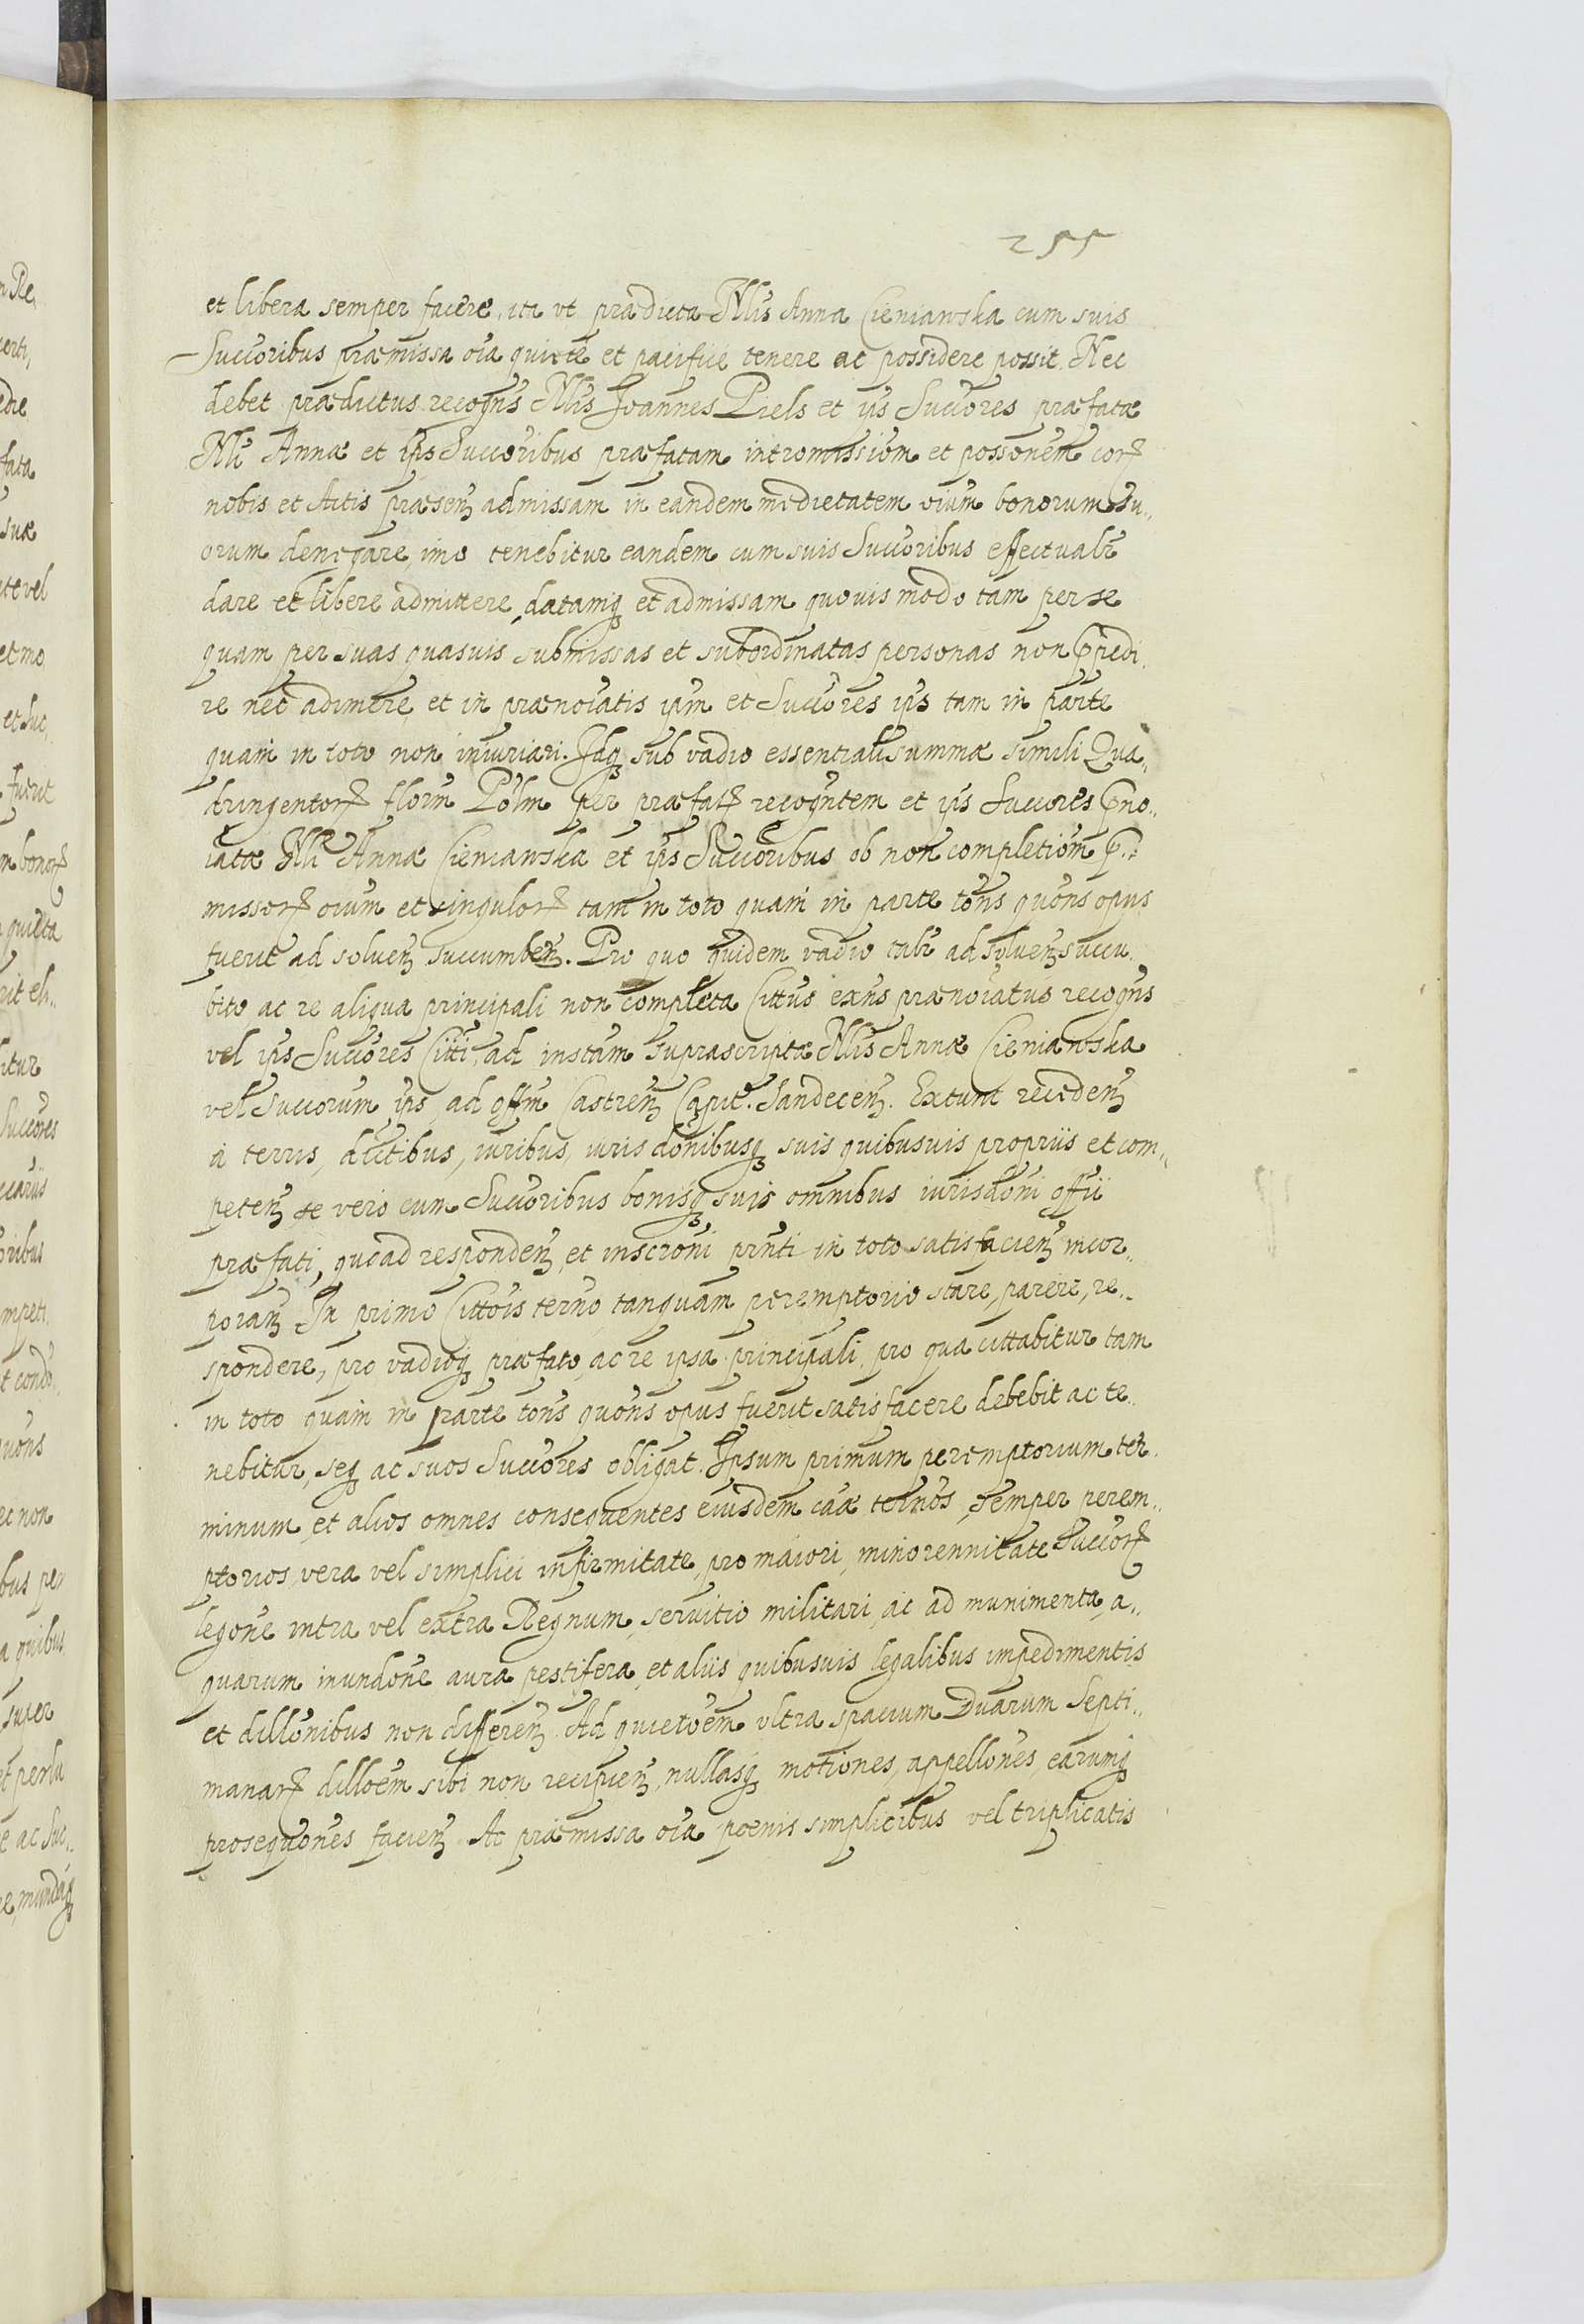 255
et libera semper facere, ita vt prædicta Nlis Anna Cieniawska cum suis
Succoribus præmissa oia quiete et pacifice tenere ac possidere possit. Nec
debet prædictus recogns Nlis Joannes Piels et ips Succores præfatæ
Nli Annæ et ips Succoribus præfatam intromissiom et possonem cor
nobis et Actis præsen admissam in eandem medietatem oium bonorum su..
orum denegare, imo tenebitur eandem cum suis Succoribus effectualr
dare et libere admittere, datamq et admissam quouis modo tam per se
quam per suas quasuis submissas et subordinatas personas non præpedi.
re nec adimere et in prænoiatis ipm et Succores ips tam in parte
quam in toto non iniuriari. Idq sub vadio essentiali summæ simili Qua..
dringentor florin Polm per præfat recogntem et ips Succores pno..
iatæ Nli Annæ Cieniawska et ips Succoribus ob non completiom p..
missor oium et singulor tam in toto quam in parte tons quons opus
fuerit ad soluen succumben. Pro quo quidem vadio talr ad soluen succu.
bito ac re aliqua principali non completa Cittus exns prænoiatus recogns
vel ips Succores Citti, ad instam suprascriptæ Nlis Annæ Cieniawska
vel Succorum ips, ad offm Castren Capit. Sandecen. Extunt receden
a terris, dictibus, iuribus, iuris donibusq suis quibusuis propriis et com..
peten se vero cum Succoribus bonisq suis omnibus iurisdoni offii
præfati, quoad responden, et inscroni prnti in toto satisfacien incor..
poran In primo Cittois terno, tanquam peremptorio stare, parere, re..
spondere, pro vadioq præfato, ac re ipsa principali, pro qua cittabitur tam
in toto quam in parte tons quons opus fuerit satisfacere debebit ac te..
nebitur, seq ac suos Succores obligat. Ipsum primum peremptorium ter.
minum, et alios omnes consequentes eiusdem caæ ternos, semper perem..
ptorios, vera vel simplici infirmitate, pro maiori, minorennitate Succor
legone intra vel extra Regnum, seruitio militari, ac ad munimenta, a..
quarum inundone aura pestifera, et aliis quibusuis legalibus impedimentis
et dillonibus non differen. Ad quietoem vltra spacium Duarum Septi..
manar dilloem sibi non recipien, nullasq motiones, appellones, earumq
prosequones facien Ac præmissa oia poenis simplicibus vel triplicatis